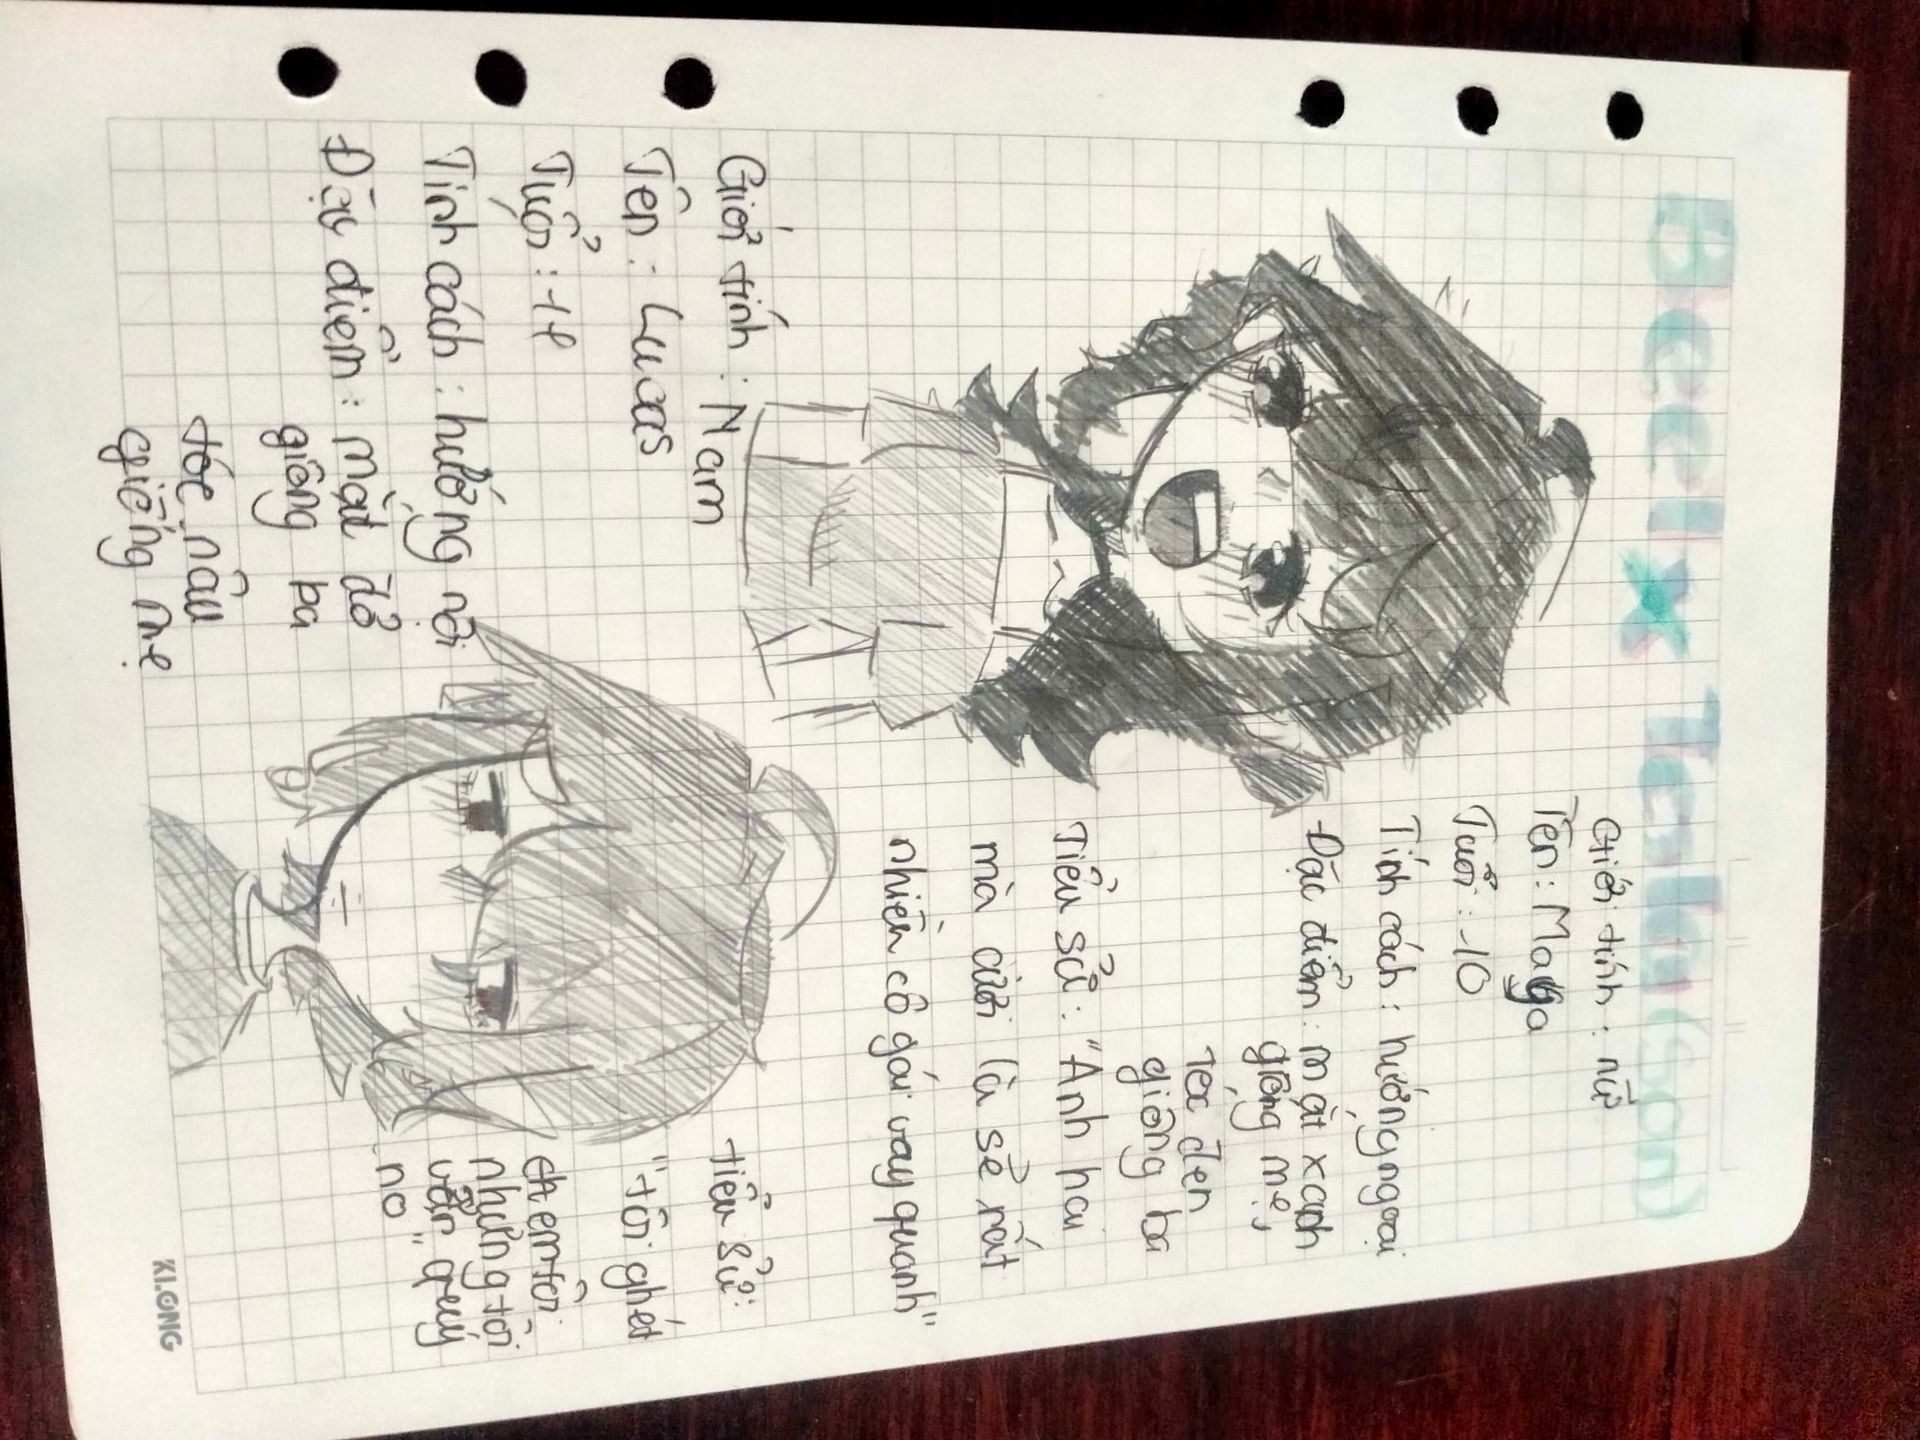 Beel x Tala (con)
Giới tính : nữ
Tên : Maya
Tuổi : 10
Tính cách : hướng ngoại
Đặc điểm : mắt xanh
giống mẹ,
tóc đen
giống ba
Tiểu sử : "Anh hai
mà cười là sẽ rất
nhiều cô gái vay quanh"
Giới tính : Nam
Tên : Lucas
Tuổi :
Tính cách : hướng nội
Đặc điểm : mắt đỏ
giống ba
tóc nâu
giống mẹ
tiểu sử :
"tôi ghét
chị em tôi
nhưng tôi
vẫn quý
nó"
KLONG